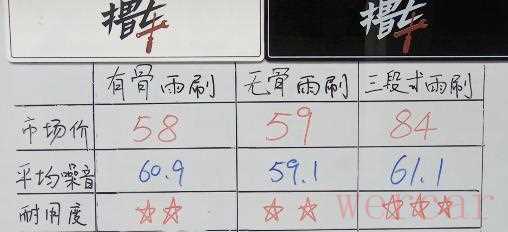 撸车 撸车
有骨雨刷 无骨雨刷 三段式雨刷
市场价 58 59 84
平均噪音 60.9 59.1 61.1
耐用度 ☆☆ ☆☆ ☆☆☆